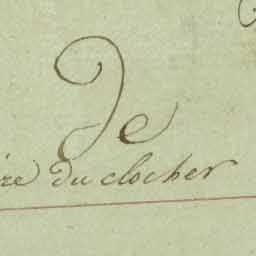 De
ire du clocher